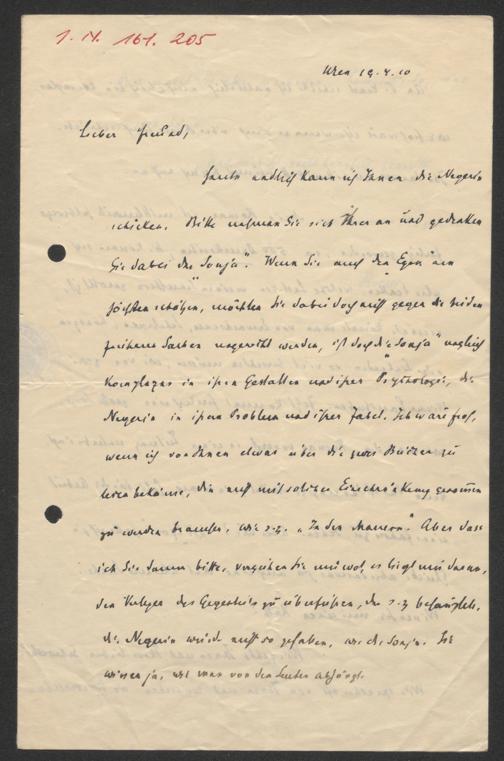 I. N. 161. 205
Wien 19.4.10
Lieber Freund,
heute endlich kann ich Ihnen die Negerin
schicken. Bitte nehmen Sie sich Ihrer an und gedenken
Sie dabei der „Sonja“. Wenn Sie auch den Egon am
höchsten schätzen, möchten Sie dabei doch nicht gegen die beiden
früheren Sachen ungerecht werden, ist doch die „Sonja“ ungleich
in ihren Gestalten und ihrer Psychologie, die
Negerin in ihrem Problem und ihrer Fabel. Ich wäre froh,
wenn ich von Ihnen etwas über die zwei Bücher zu
lesen bekäme, die nicht mit solcher Einschränkung genommen
zu werden brauchen, wie z.B. „In den Mauern“. Aber dass
ich Sie darum bitte, verzeihen Sie mir wol, es liegt mir daran,
den Verleger des Gegenteils zu überführen, der z.B. behauptete,
die Negerin würde nicht so gefallen, wie die Sonja. Sie
wissen ja, wie man von den Leuten abhängt.